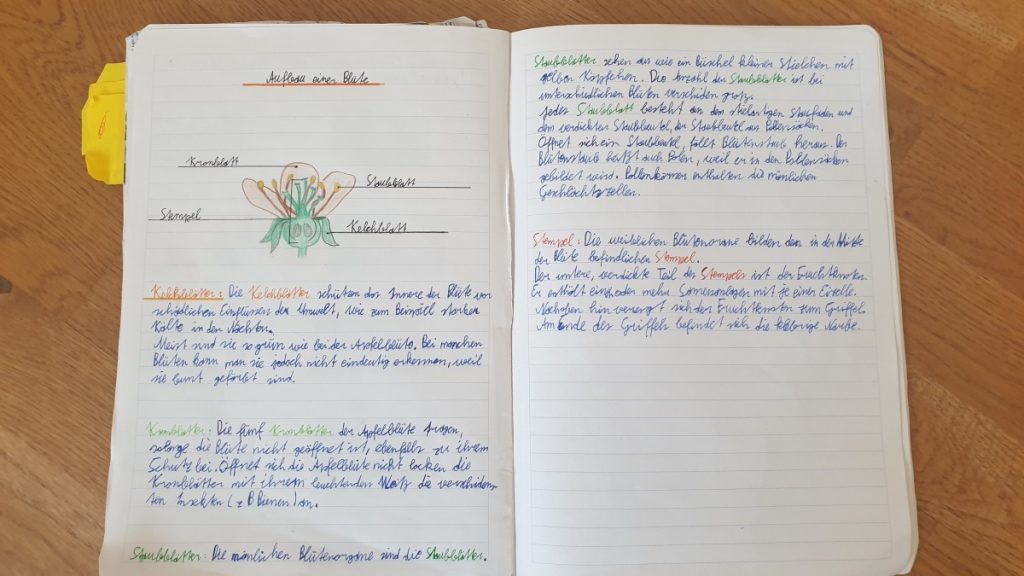 Aufbau einer Blüte
Kronblatt
Staubblatt
Stempel
Kelchblatt
Kelchblätter: Die Kelchblätter schützen das Innere der Blüte vor
schädlichen Einflüssen der Umwelt, wie zum Beispiel starker
Kälte in den Nächten.
Meist sind sie so grün wie bei der Apfelblüte. Bei manchen
Blüten kann man sie jedoch nicht eindeutig erkennen, weil
sie bunt gefärbt sind.
Kronblätter: Die fünf Kronblätter der Apfelblüte tragen,
solange die Blüte nicht geöffnet ist, ebenfalls zu ihrem
Schutz bei. Öffnet sich die Apfelblüte nicht locken die
Kronblätter mit ihrem leuchtenden Weiß die verschidens-
ten Insekten (z B Bienen) an.
Staubblätter: Die mänlichen Blütenorgane sind die Staubblätter.
Staubblätter sehen aus wie ein Büschel kleiner Stielchen mit
gelben Köpfchen. Die Anzahl der Staubblätter ist bei
unterschidlichen Blüten verschiden groß.
Jedes Staubblatt besteht aus dem stielartigen Staufaden und
dem verdickten Staubbeutel, der Staubbeutel aus Pollensäcken.
Öffnet sich ein Staubbeutel, fällt Blütenstaub heraus. Der
Blütenstaub heißt auch Polen, weil er in den Pollensäcken
gebildet wird. Pollenkörner enthalten die mänlichen
Geschlächtszellen.
Stempel: Die weiblichen Blütenorgane bilden den in der Mitte
der Blüte befindlichen Stempel.
Der untere, verdickte Teil des Stempels ist der Fruchtknoten.
Er enthält ein oder mehr Samenanlagen mit je einer Eizelle.
Nach oben hin verengt sich der Fruchtknoten zum Griffel.
Am ende des Griffels befindet sich die klebrige Narbe.